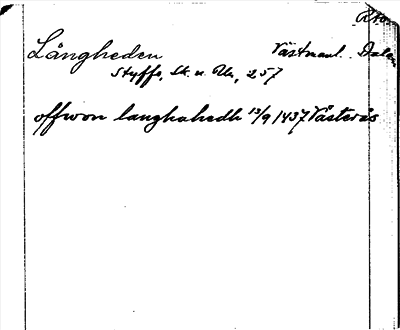 Långheden Västmanl. Dalar
Styffe, Sk. u. Un., 257
offwon langhahedh 13/9 1437 Västerås